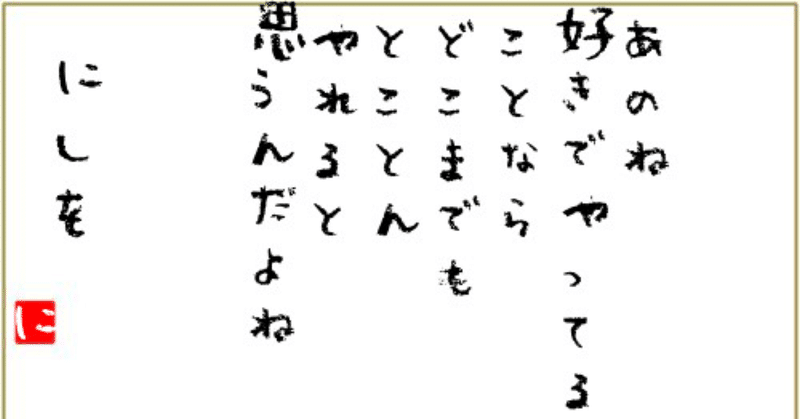 あのね
好きでやってる
ことなら
どこまでも
とことん
やれると
思うんだよね
にしを
に